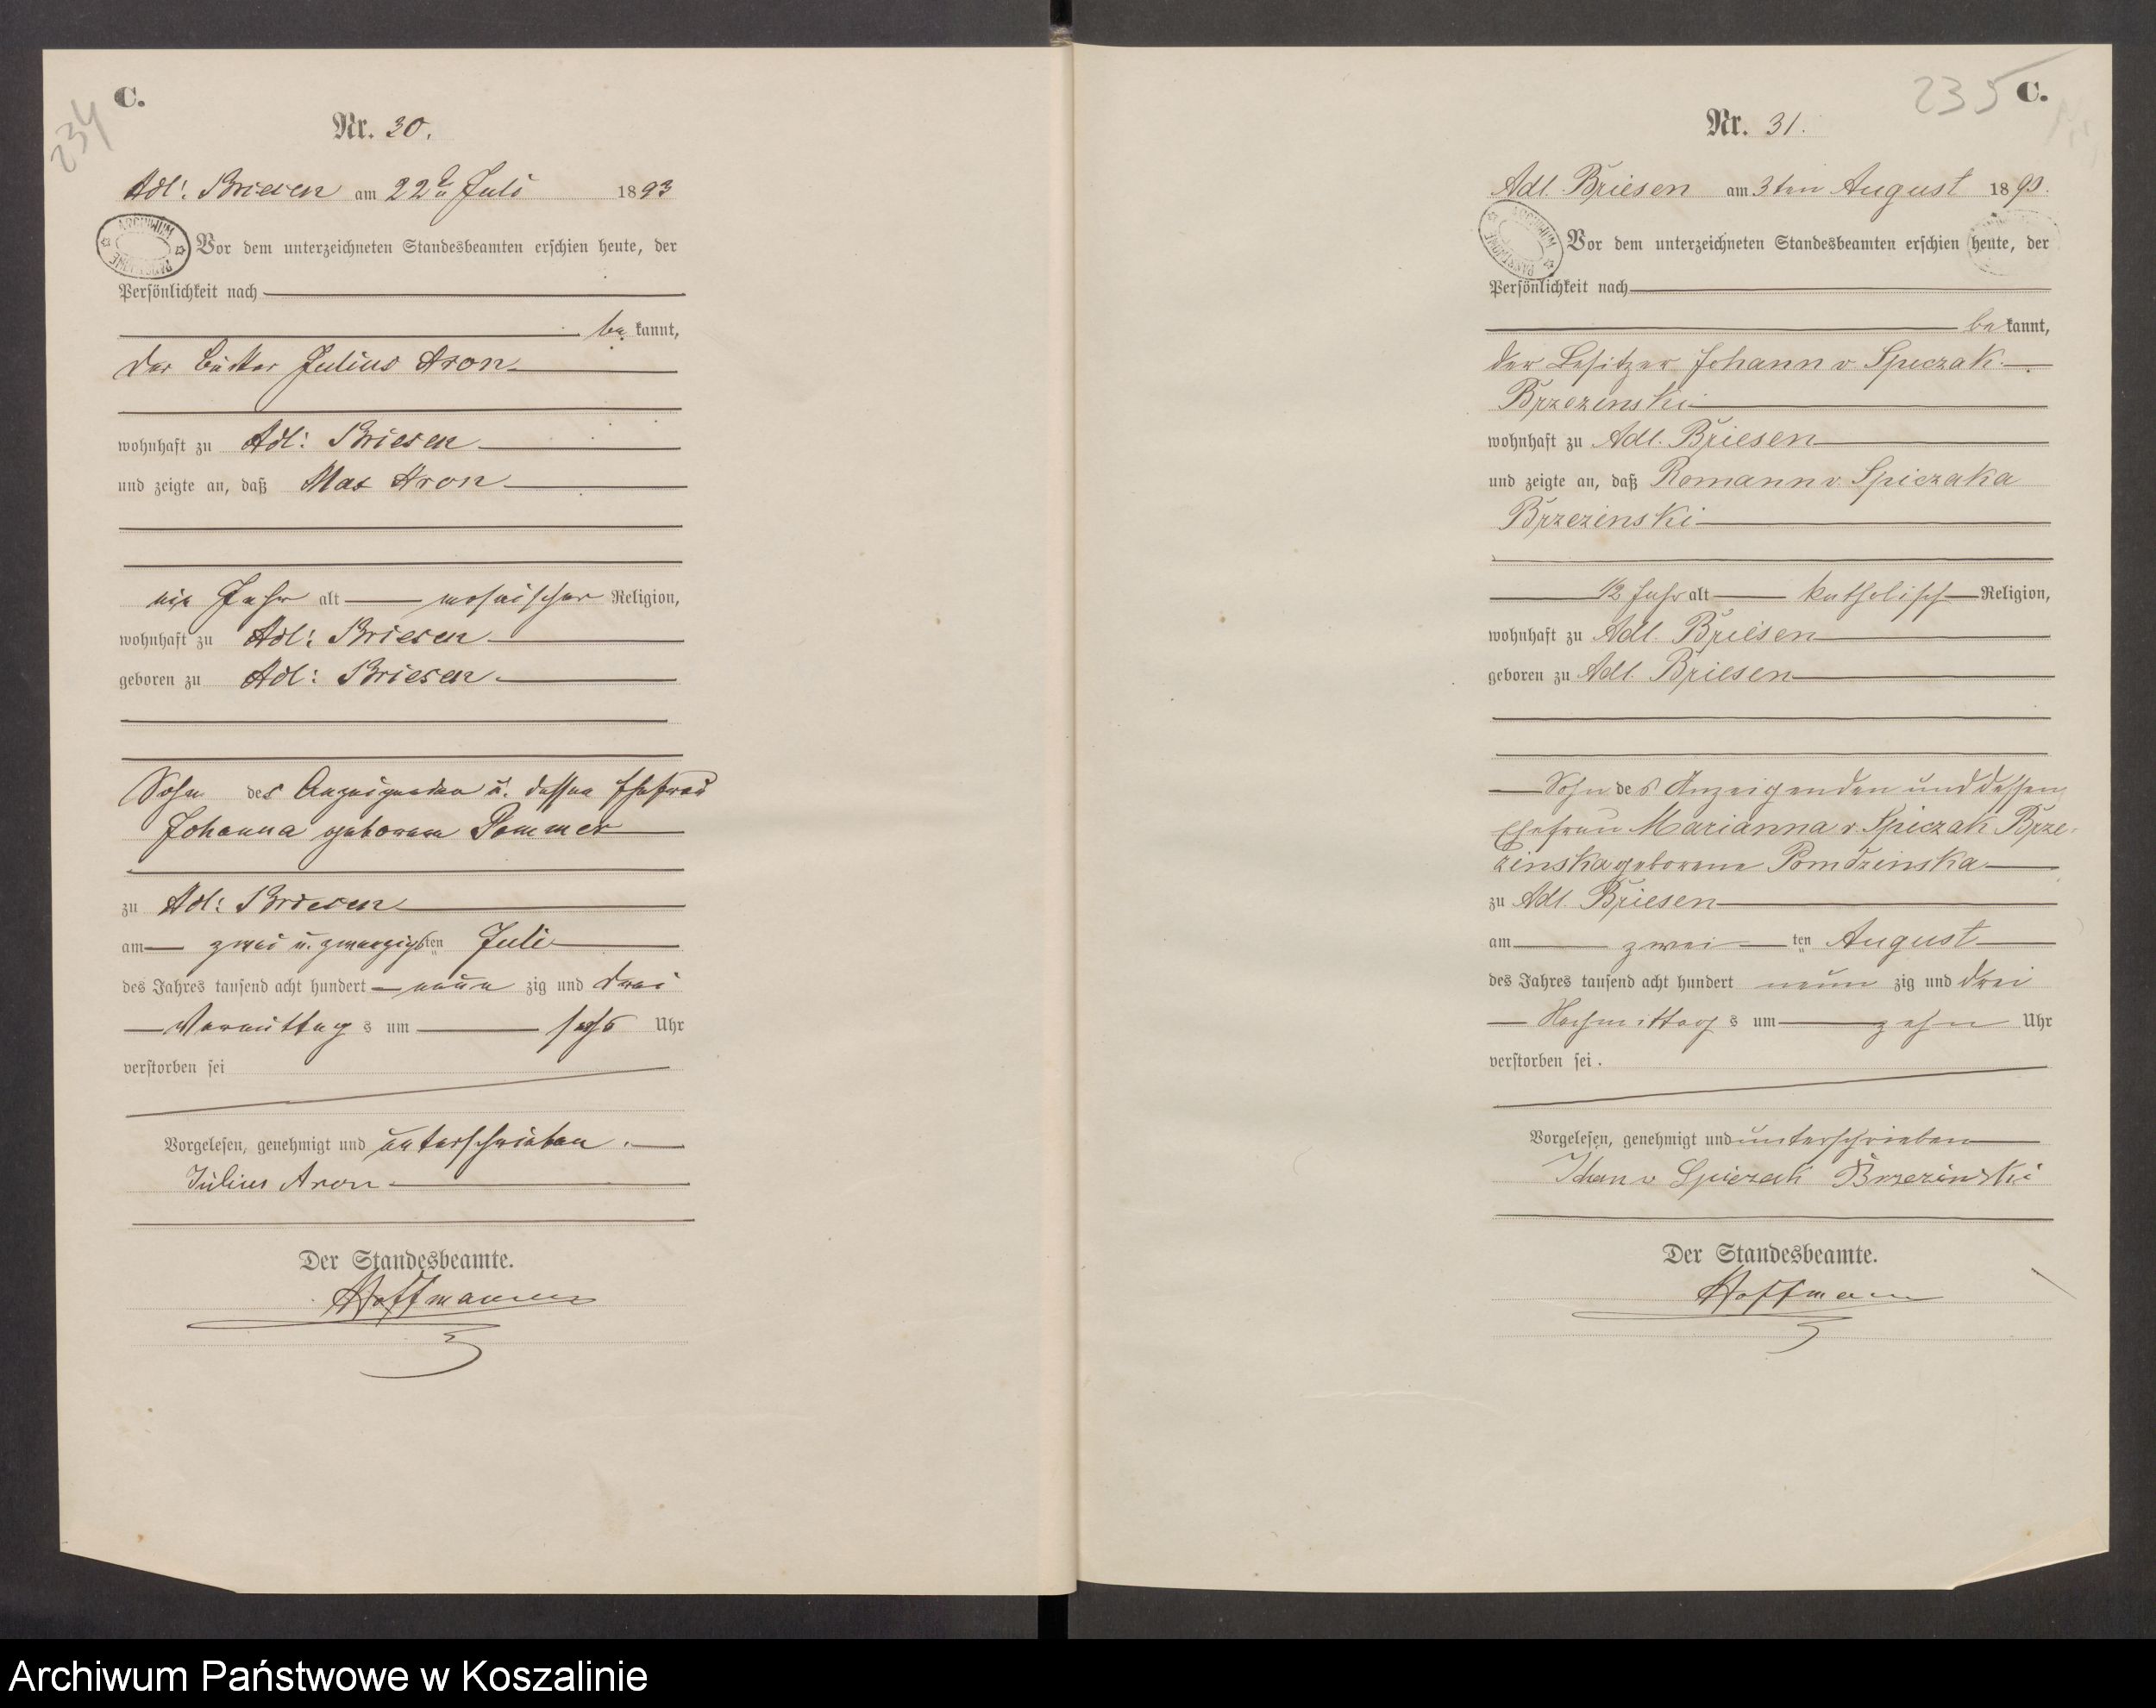 234
C.
Nr. 30.
Adl: Briesen am 22t Juli 1893
ARCHIWUM PAŃSTWOWE
Vor dem unterzeichneten Standesbeamten erschien heute, der
Persönlichkeit nach
be kannt,
der Julius Aron
wohnhaft zu Adl: Briesen
und zeigte an, daß Max Aron
ein Jahr alt mosaischer Religion,
wohnhaft zu Adl: Briesen
geboren zu Adl: Briesen
Sohn des Anzeigenden u. dessen Ehefrau
Johanna geborene Sommer
zu Adl: Briesen
am zwei u. zwanzigsten Juli
des Jahres tausend acht hundert neun zig und drei
Vormittag s um sechs Uhr
verstorben sei
Vorgelesen, genehmigt und unterschrieben.
Julius Aron
Der Standesbeamte.
Hoffmann
235
C.
Nr. 31.
Adl. Briesen am 3ten August 1893.
ARCHIWUM PAŃSTWOWE
Vor dem unterzeichneten Standesbeamten erschien heute, der
Persönlichkeit nach
be kannt,
der Besitzer Johann v. Spiczak
Brzezinski
wohnhaft zu Adl. Briesen
und zeigte an, daß Romann v. Spiczaka
Brzezinski
1/2 Jahr alt katholisch Religion,
wohnhaft zu Adl. Briesen
geboren zu Adl. Briesen
Sohn des Anzeigenden und dessen
Ehefrau Marianna v. Spiczak Brze-
zinska geborene
zu Adl. Briesen
am zwei ten August
des Jahres tausend acht hundert neun zig und drei
Nachmittag s um zehn Uhr
verstorben sei.
Vorgelesen, genehmigt und unterschrieben
Johan v Spiczak Brzezinski
Der Standesbeamte.
Hoffmann
Archiwum Państwowe w Koszalinie